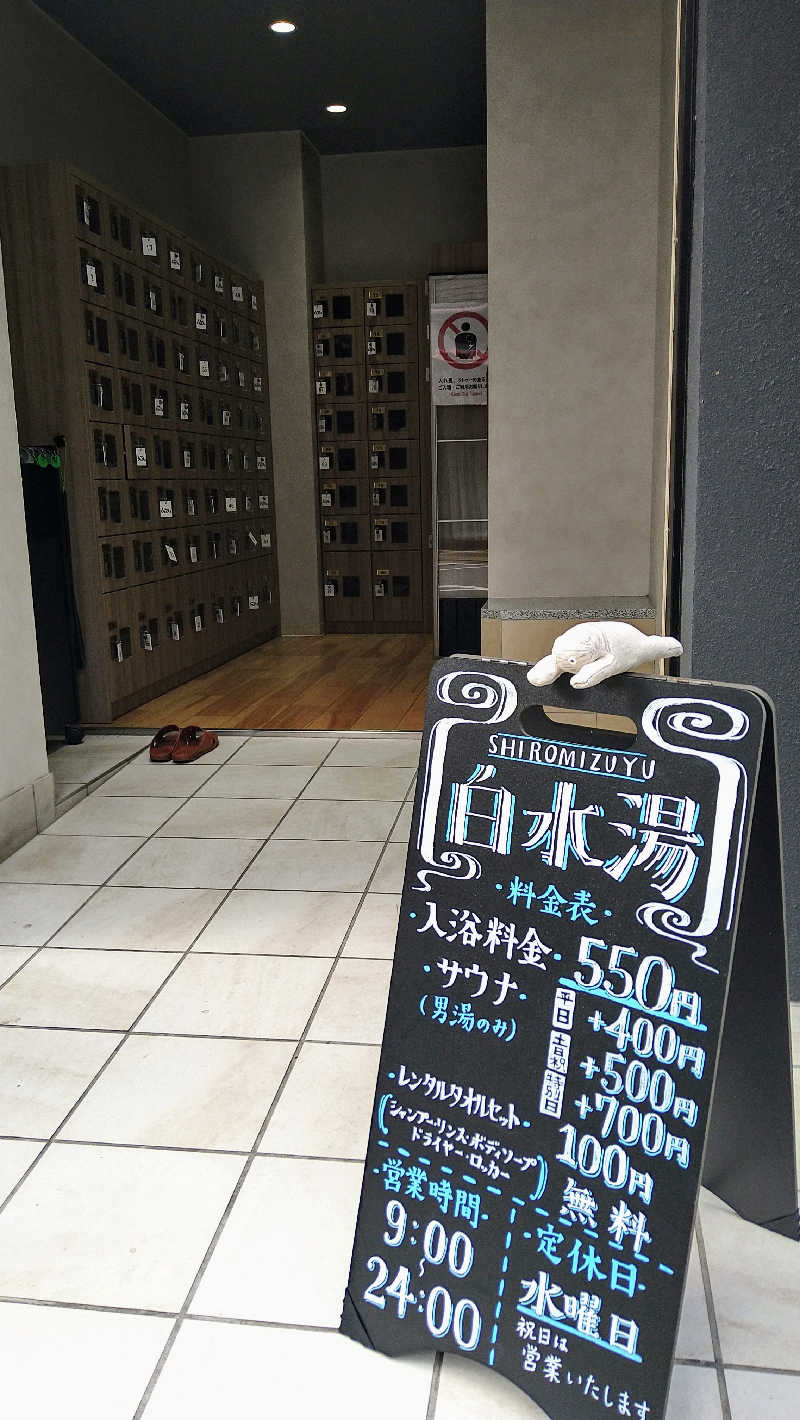 SHIROMIZUYU
白水湯
・料金表・
入浴料金・550円
・サウナ・
(男湯のみ)
平日 +400円
土日祝 +500円
特別日 +700円
・レンタルタオルセット・ 100円
(シャンプー・リンス・ボディソープ
ドライヤー・ロッカー) 無料
・営業時間・
9:00
〜
24:00
・定休日・
水曜日
祝日は
営業いたします